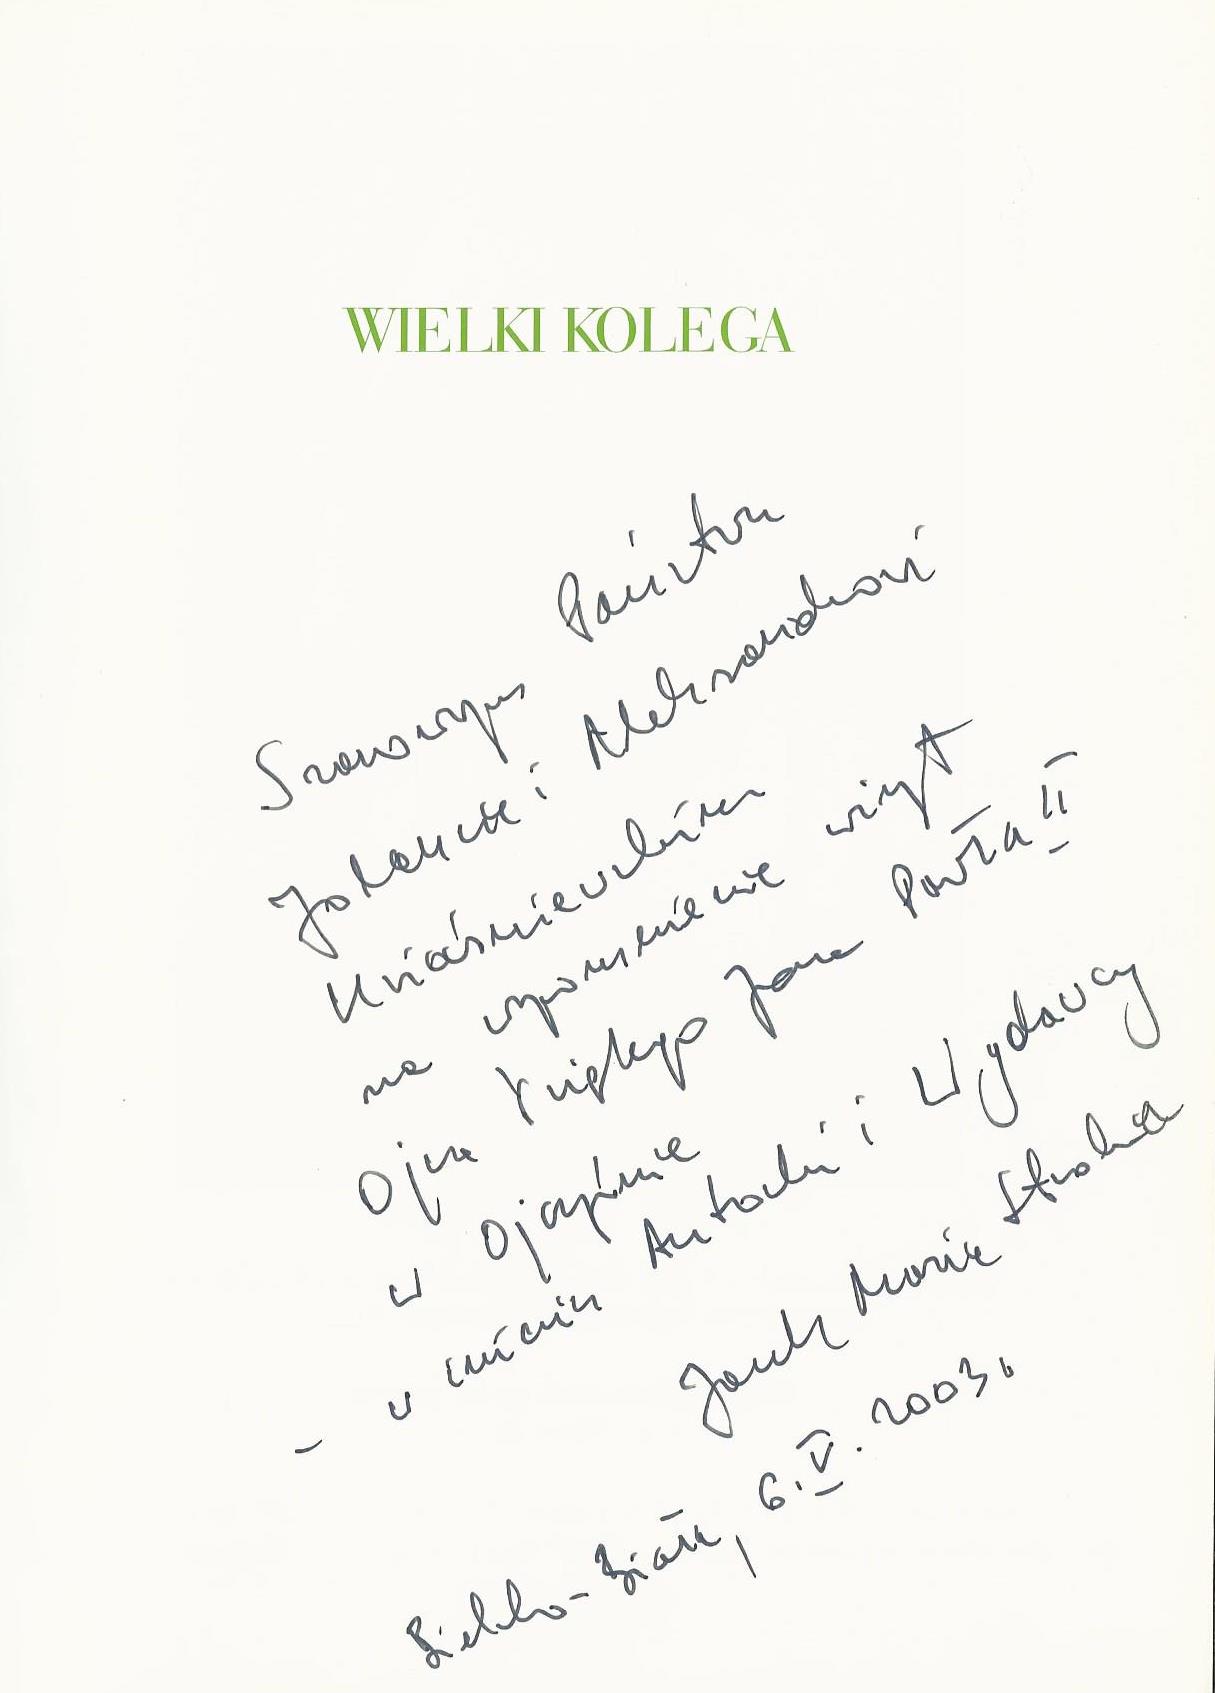 WIELKI KOLEGA
Szanownym Państwu
Jolancie i Aleksandrowi
Kwaśniewskim
na wspomnienie wizyt
Ojca Świętego Jana Pawła II
w Ojczyźnie
- w imieniu Autorki i Wydawcy
Jacek Maria Stroka
Bielsko-Biała, 6.V.2003.